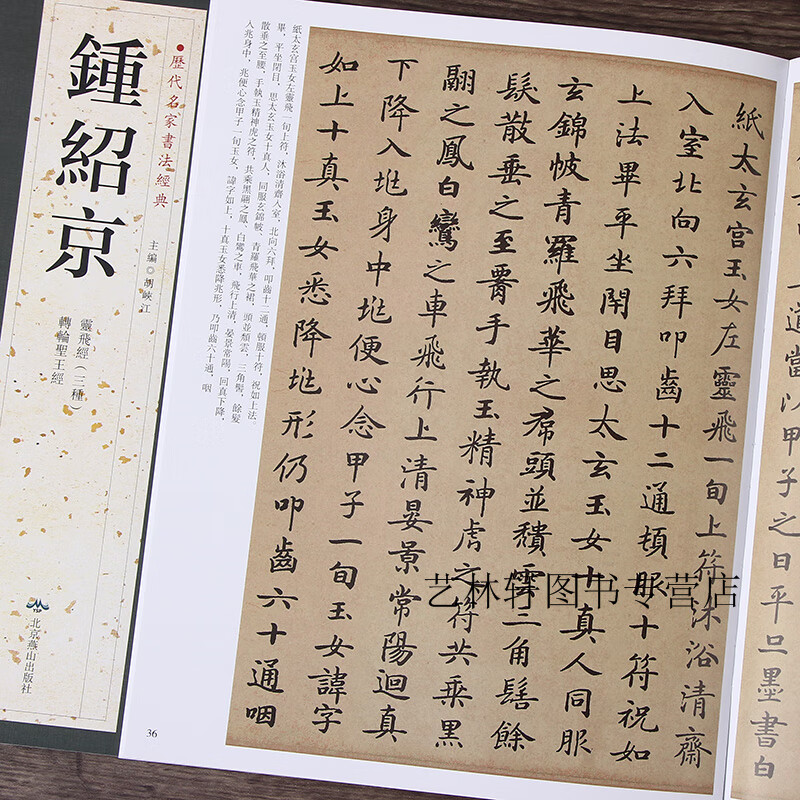 歷代名家書法經典
鍾紹京
主編 胡峽江
靈飛經（三種）
轉輪聖王經
YSP
北京燕山出版社
紙太玄宮玉女左靈飛一旬上符，沐浴清齋入室，北向六拜，叩齒十二通，頓服十符，祝如上法
畢，平坐閉目，思太玄玉女十真人，同服玄錦帔，青羅飛華之裙，頭並頹雲，三角髻，餘髮
散垂之至腰，手執玉精神虎之符，共乘黑翮之鳳，白鸞之車，飛行上清，晏景常陽，回真下降，
入兆身中，兆便心念甲子一旬玉女，諱字如上，十真玉女悉降兆形，乃叩齒六十通，咽
紙太玄宮玉女左靈飛一旬上符沐浴清齋
入室北向六拜叩齒十二通頓服十符祝如
上法畢平坐閉目思太玄玉女十真人同服
玄錦帔青羅飛華之帬頭並頹雲三角髻餘
髮散垂之至署手執玉精神虎之符共乘黑
翮之鳳白鸞之車飛行上清晏景常陽迴真
下降入兆身中兆便心念甲子一旬玉女諱字
如上十真玉女悉降兆形仍叩齒六十通咽
道當以甲子之日平旦墨書白
艺林轩图书专营店
36